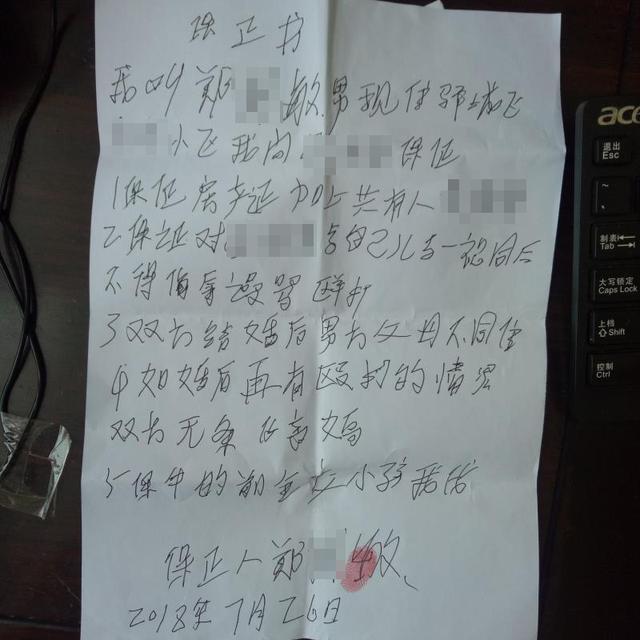 保正书
我叫郑 敏男现住
小区我向 保证
1保证房产证加上共有人
2保证对 与自己儿女一视同仁
不得侮辱谩骂殴打
3双方结婚后男方父母不同住
4如婚后再有殴打的情况
双方无条件离婚
5保
保正人郑 敏
2018年7月26日
acer
退出
Esc
制表
Tab
大写锁定
Caps Lock
上档
Shift
控制
Ctrl